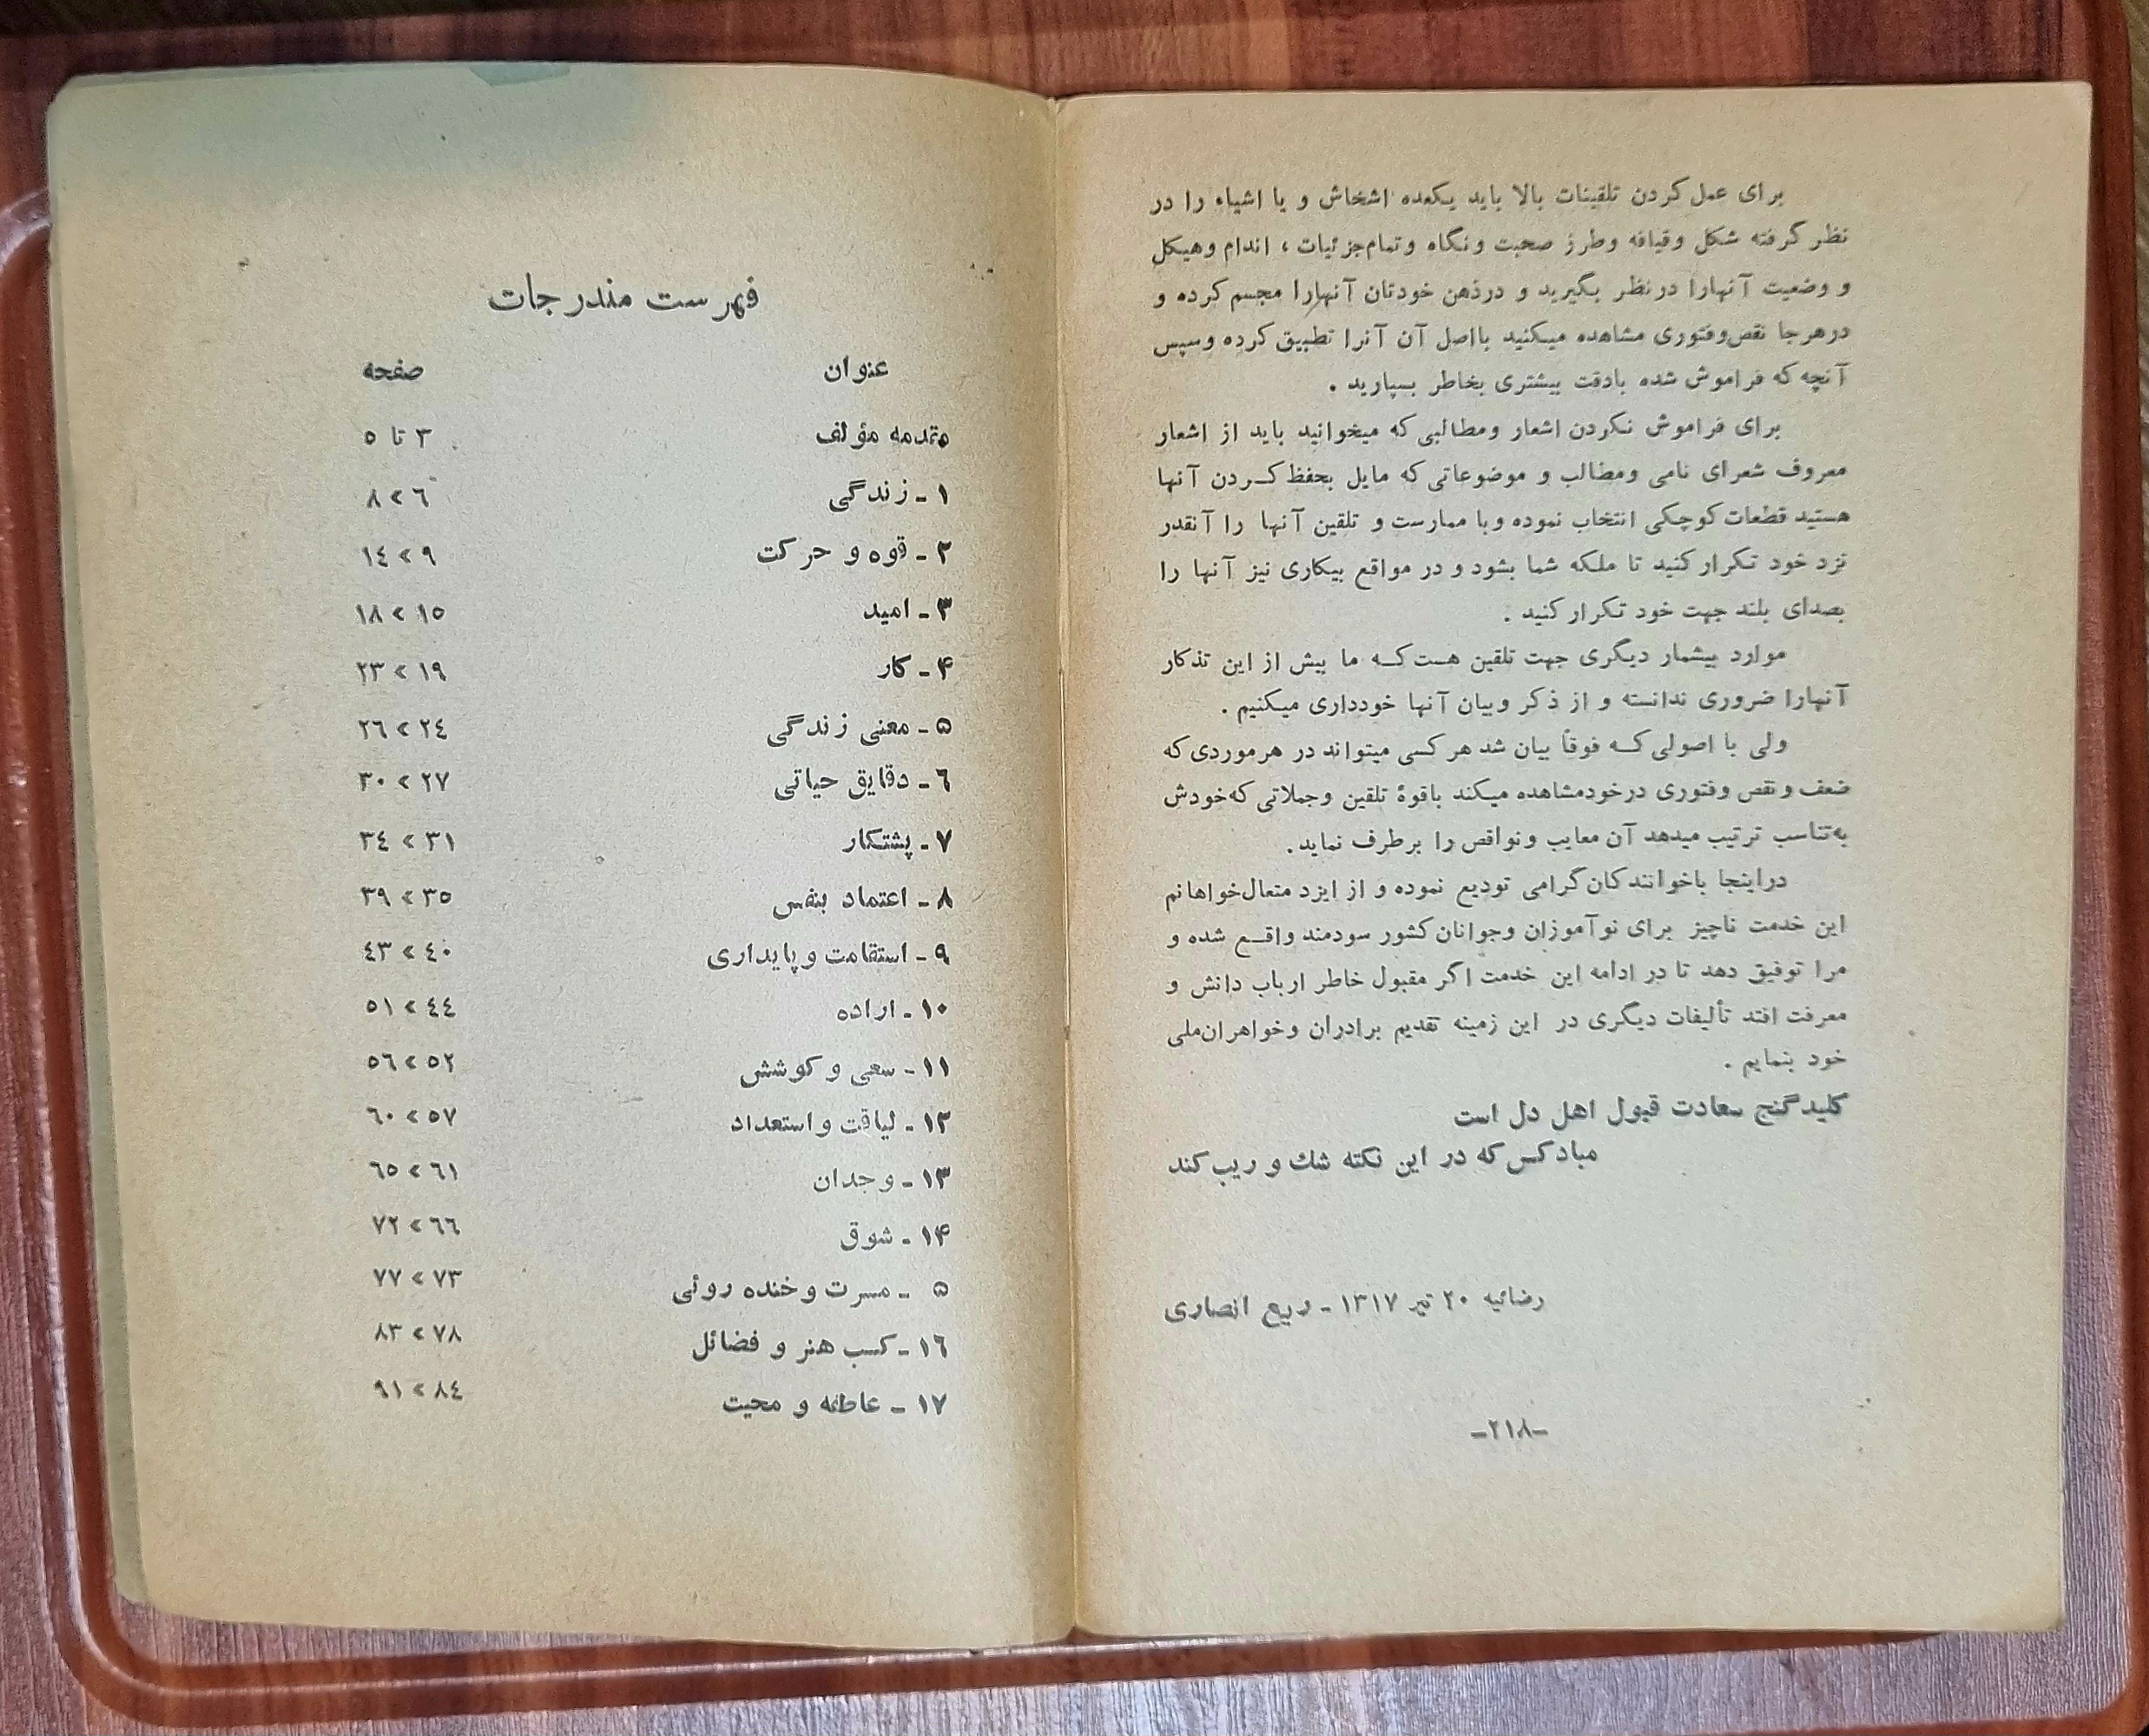 برای عمل کردن تلقینات بالا باید یکعده اشخاش و یا اشیاء را در
نظر گرفته شکل وقیافه وطرز صحبت ونگاه وتمام‌جزئیات ، اندام وهیکل
و وضعیت آنهارا درنظر بگیرید و درذهن خودتان آنهارا مجسم کرده و
درهرجا نقص‌وفتوری مشاهده میکنید بااصل آن آنرا تطبیق کرده وسپس
آنچه که فراموش شده بادقت بیشتری بخاطر بسپارید .
برای فراموش نکردن اشعار ومطالبی که میخوانید باید از اشعار
معروف شعرای نامی ومطالب و موضوعاتی که مایل بحفظ کـردن آنها
هستید قطعات کوچکی انتخاب نموده وبا ممارست و تلقین آنها را آنقدر
نزد خود تکرار کنید تا ملکه شما بشود و در مواقع بیکاری نیز آنها را
بصدای بلند جهت خود تکرار کنید .
موارد بیشمار دیگری جهت تلقین هست کـه ما بیش از این تذکار
آنهارا ضروری ندانسته و از ذکر وبیان آنها خودداری میکنیم .
ولی با اصولی کـه فوقاً بیان شد هرکسی میتواند در هرموردی که
ضعف ونقص وفتوری درخودمشاهده میکند باقوهٔ تلقین وجملاتی که‌خودش
به‌تناسب ترتیب میدهد آن معایب ونواقص را برطرف نماید .
دراینجا باخوانندکان‌گرامی تودیع نموده و از ایزد متعال‌خواهانم
این خدمت ناچیز برای نوآموزان وجوانان‌کشور سودمند واقـع شده و
مرا توفیق دهد تا در ادامه این خدمت اگر مقبول خاطر ارباب دانش و
معرفت افتد تألیفات دیگری در این زمینه تقدیم برادران وخواهران‌ملی
خود بنمایم .
کلید گنج سعادت قبول اهل دل است
مبادکس‌که در این نکته شك و ریب کند
رضائیه ۲۰ تیر ۱۳۱۷ - ربیع انصاری
-۲۱۸-
فهرست مندرجات
عنوان صفحه
مقدمه مؤلف ۳ تا ٥
۱ - زندگی ٦ > ۸
۲ - قوه و حرکت ۹ » ۱٤
۳ - امید ۱٥ > ۱۸
۴ - کار ۱۹ > ۲۳
۵ - معنی زندگی ۲٤ > ۲٦
٦ - دقایق حیاتی ۲۷ > ۳۰
۷ - پشتکار ۳۱ » ۳٤
۸ - اعتماد بنفس ۳٥ > ۳۹
۹ - استقامت و پایداری ٤۰ > ٤۳
۱۰ - اراده ٤٤ > ٥۱
۱۱ - سعی و کوشش ٥۲ > ٥٦
۱۲ - لیاقت واستعداد ٥۷ > ٦۰
۱۳ - وجدان ٦۱ > ٦٥
۱۴ - شوق ٦٦ > ۷۲
۵ - مسرت وخنده روئی ۷۳ > ۷۷
۱٦ - کسب هنر و فضائل ۷۸ > ۸۳
۱۷ - عاطفه و محبت ۸٤ > ۹۱